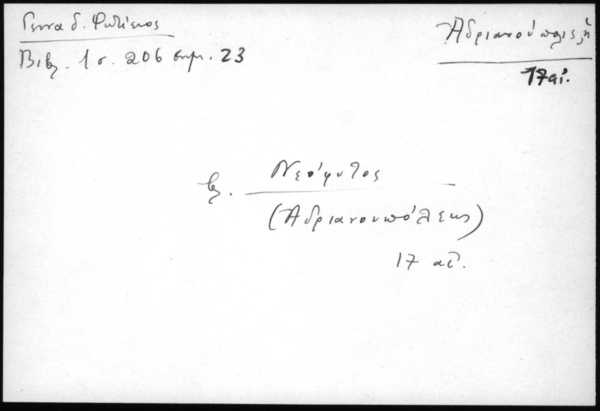 Γεννάδ. Φωτίειος
Βιβλ. 1 σ. 206 σημ. 23
Ἀδριανούπολις, ἡ
17 αἰ.
βλ. Νεόφυτος
(Ἀδριανουπόλεως)
17 αἰ.